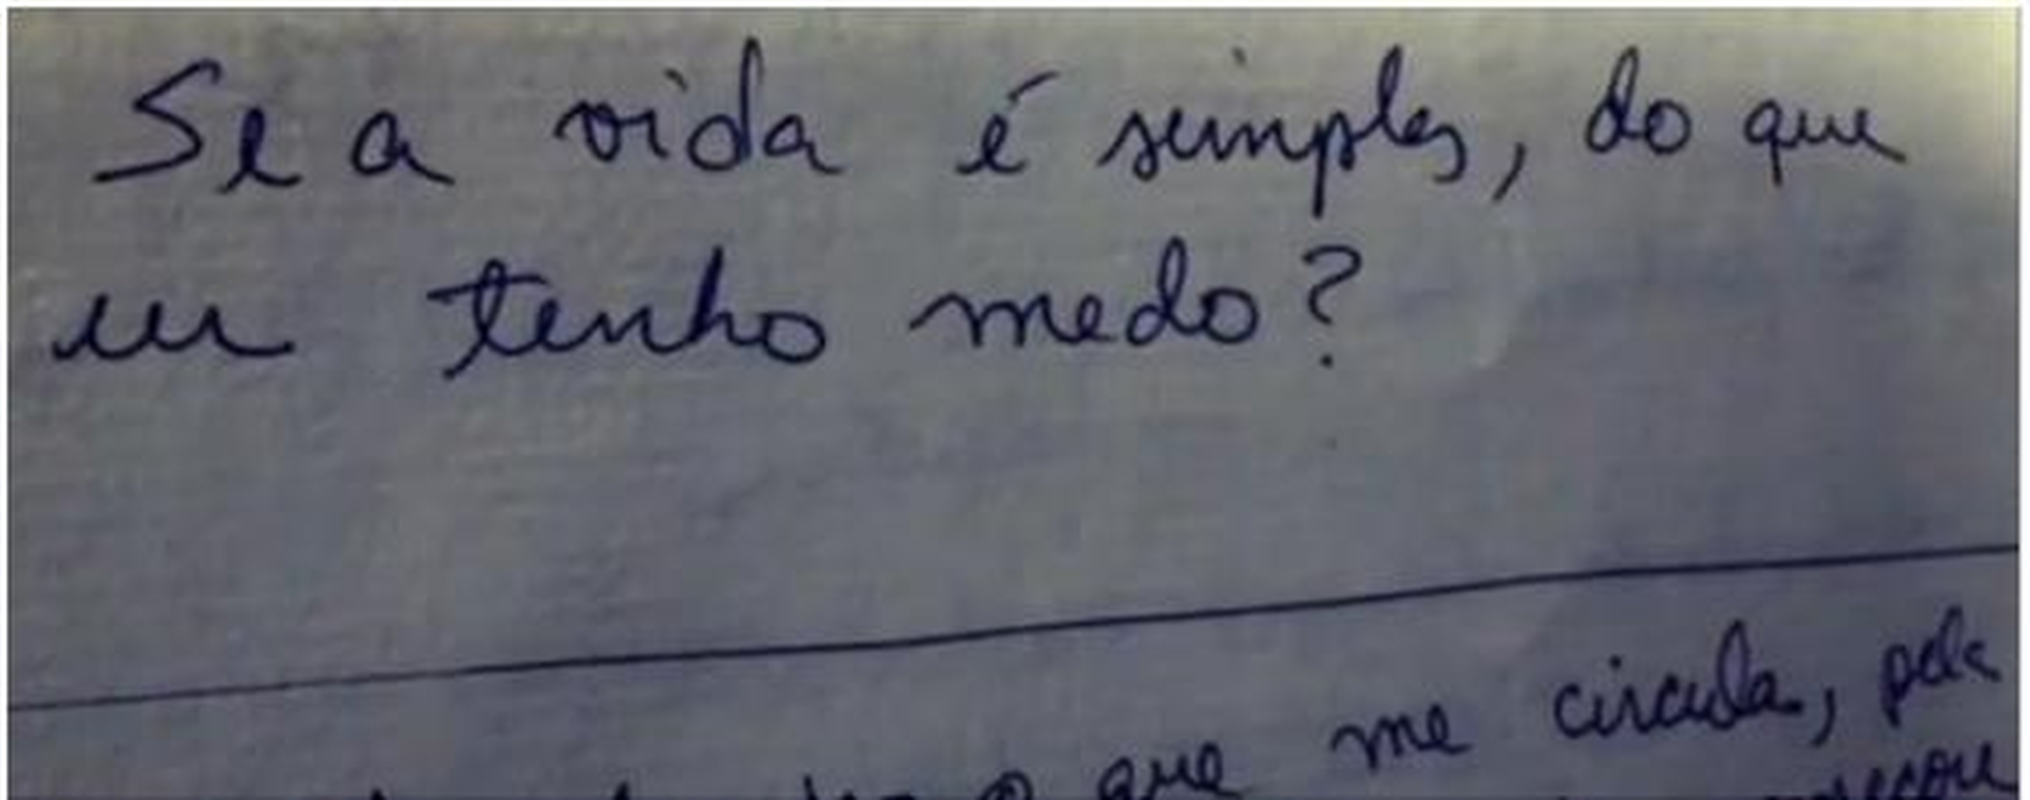 Se a vida é simples, do que
eu tenho medo?
o que me circula, pela